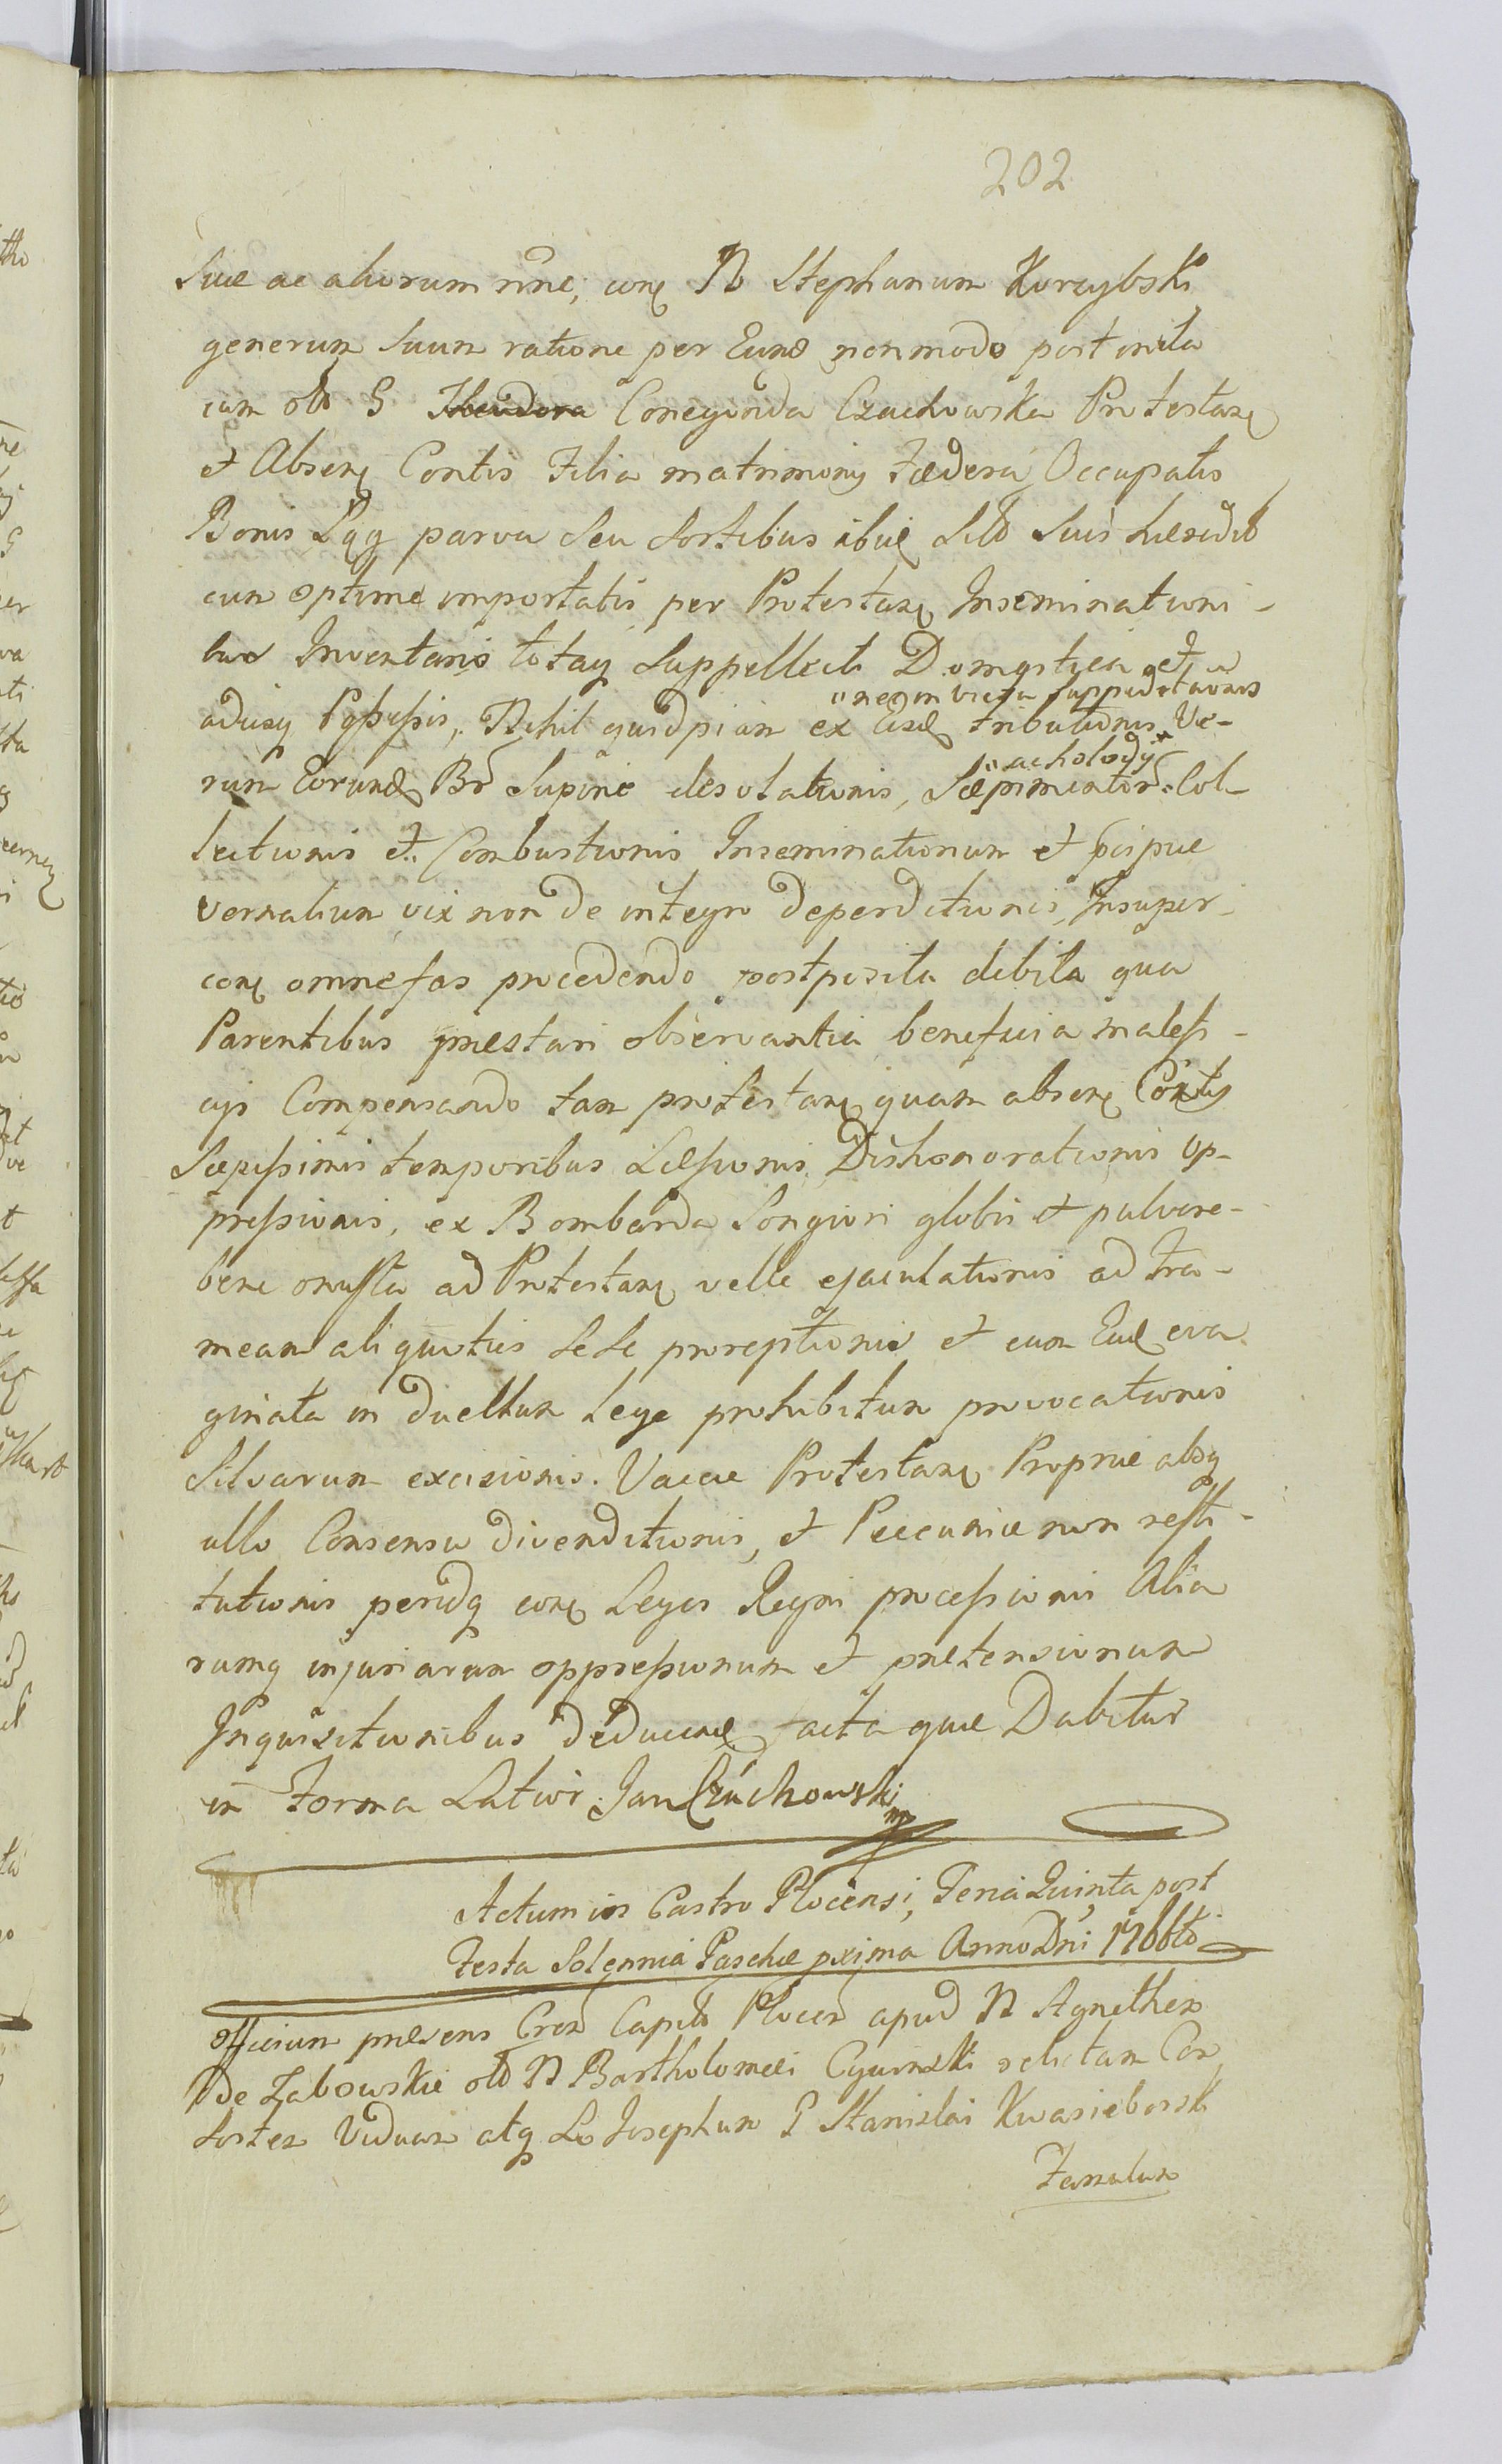 202
suæ ac aliorum nñe, conꝫ N Stephanum Korzybski
generum suum ratione per Eund nonmodo post inita
cum olȏ G Theudora Conegunda Czachowska Protestanꝫ
et Absenꝫ Contis Filia matrimonij Fædera, Occupatis
Bonis parva seu sortibus ibidꝫ suis hæredit
cum optime importatis per Protestanꝫ Inseminationi-
bus Inventario totaqꝫ suppellecti Domestica et
adusqꝫ Pposessis, Nihil quidpiam ex Eisdꝫ tributionis, Ve-
"neqꝫ in victu suppeditationis
rum Eorundꝫ Bȓ Supinæ desolationis, Sæpimentor Col-
"ac holody
lectionis et Combustionis Inseminationum et pcipue
vernalium vix non de integro deperditionis, Insuper
conꝫ omne fas procedendo postposita debita qua
Parentibus præstari observantia beneficia malefi-
cijs Compensando tam protestanꝫ quam absenꝫ Contis
Sæpissimis temporibus Læsionis Dishonorationis op-
pressionis, ex Bombarda Longiori globis et pulvere
bene onusta ad Protestanꝫ velle ejaculationis ad fra-
meam aliquoties sese proreptionis et cum Eadꝫ eva
ginata in duellum Lege prohibitum provocationis
Silvarum excisionis. Vaccæ Protestanꝫ Propriæ absqꝫ
ullo Consensu divenditionis, et Peccuniæ non resti-
tutionis peridqꝫ conꝫ Leges Regni processionis Alia
rumqꝫ injuriarum oppressionum et prætensionum
Inquisitionibus deducendꝫ facta quæ Dabitur
in Forma Latiori. Jan Czachowski mp
Actum in Castro Plocensi, Feria Quinta post
Festa Solennia Paschæ pxima Anno Dni 1766to
Officium præsens Cren Capitl Plocen apud N Agnethem
De Zabowskie olȏ N Bartholomæi Cywinski relictam Con
sortem Viduam atqꝫ Lo Josephum G Stanislai Kwasieborski
Famulum